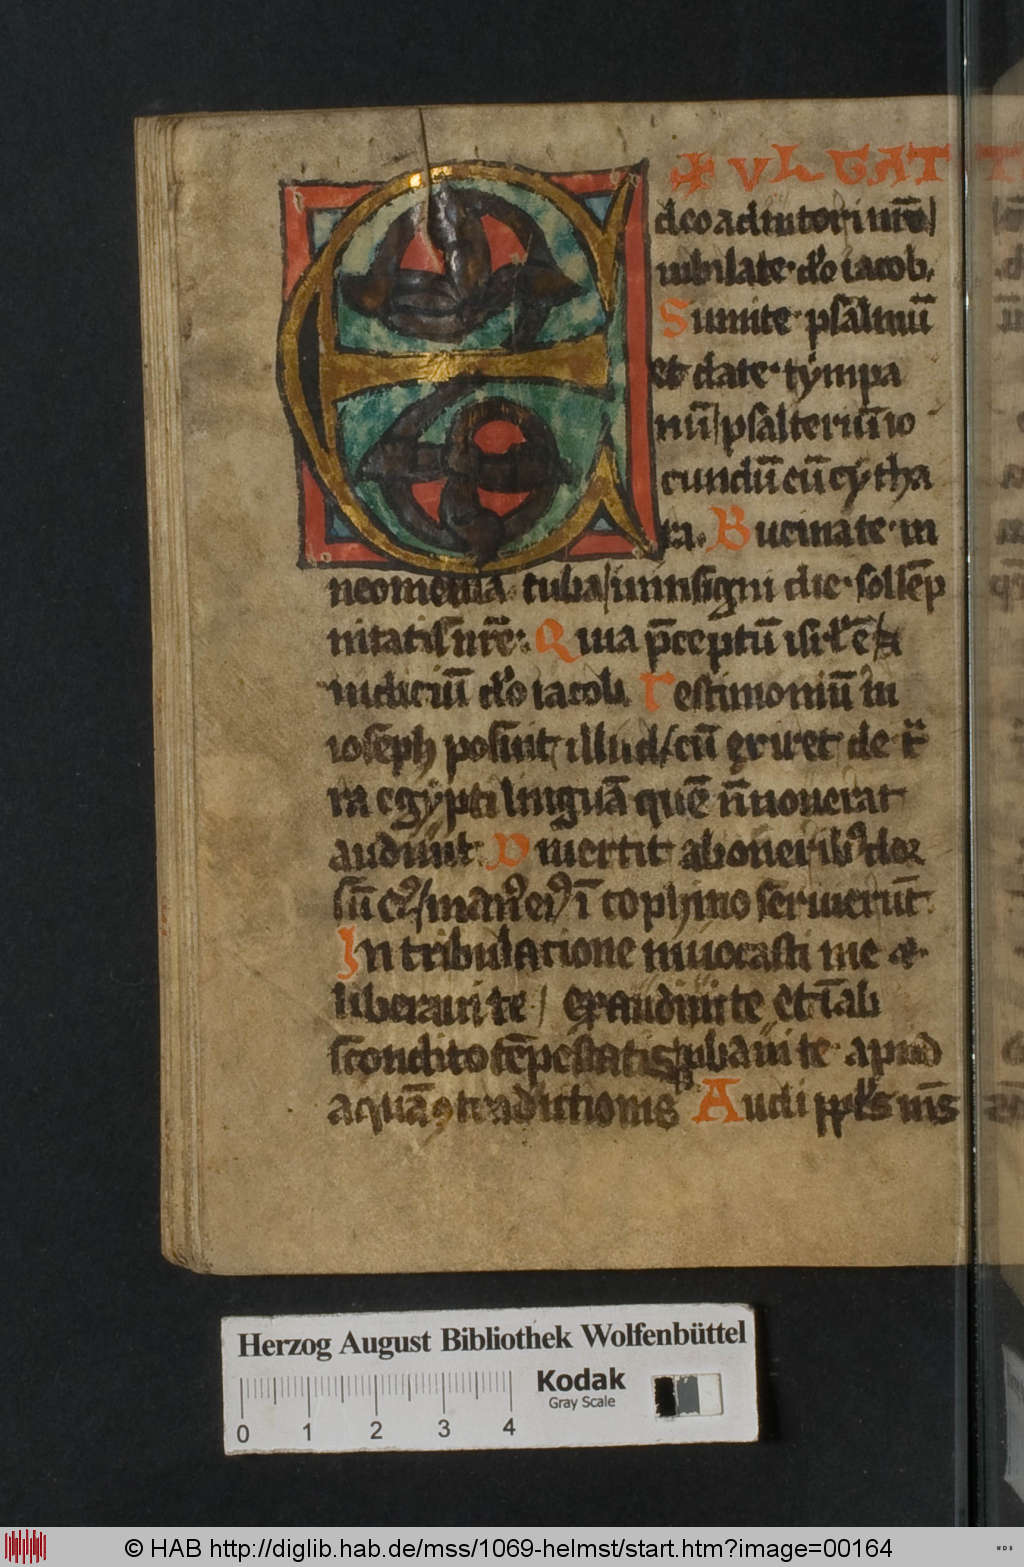 EXULTAT
deo adiutori nr̄o/
iubilate · do iacob.
Sumite · psalmū
et date · tympa
nū / psalteriū io
cundū cū cytha
ra. Bucinate · in
neomenia tuba / in insigni die · sollēp
nitatis nr̄e. Quia p̄ceptū isrl̄ ē / &
iudiciū do iacob Testimoniū in
ioseph posuit illud / cū exiret de t̄
ra egypti linguā quē n̄ nouerat
audiuit. Diuertit ab oneribꝰ dor
sū eiꝰ / manꝰ eiꝰ ī cophino seruierūt
In tribulacione inuocasti me &
liberaui te / exaudiui te et ī ab
scondito tēpestatis / ꝓbaui te · apud
aquā ɔtradictionis Audi ppl̄s m̄s
Herzog August Bibliothek Wolfenbüttel
Kodak
Gray Scale
0 1 2 3 4
© HAB http://diglib.hab.de/mss/1069-helmst/start.htm?image=00164